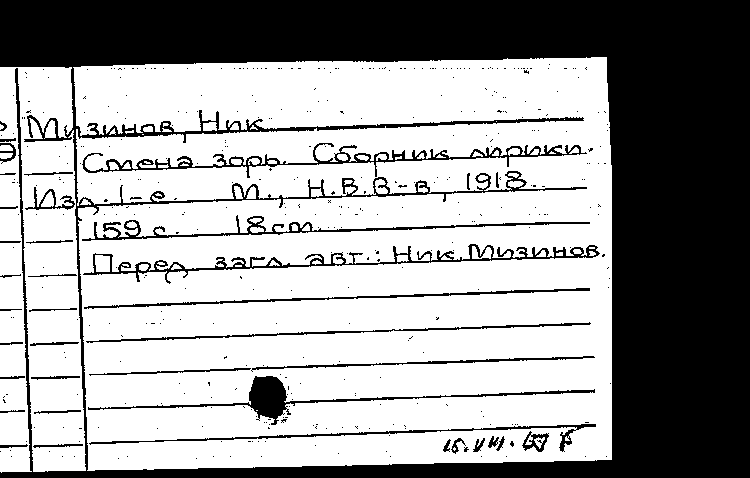 Мизинов, Ник
Смена зорь. Сборник лирики.
Изд. 1-е. М., Н.В.В-в, 1918.
159 с. 18 cm.
Перед загл. авт.: Ник. Мизинов.
15.VIII.